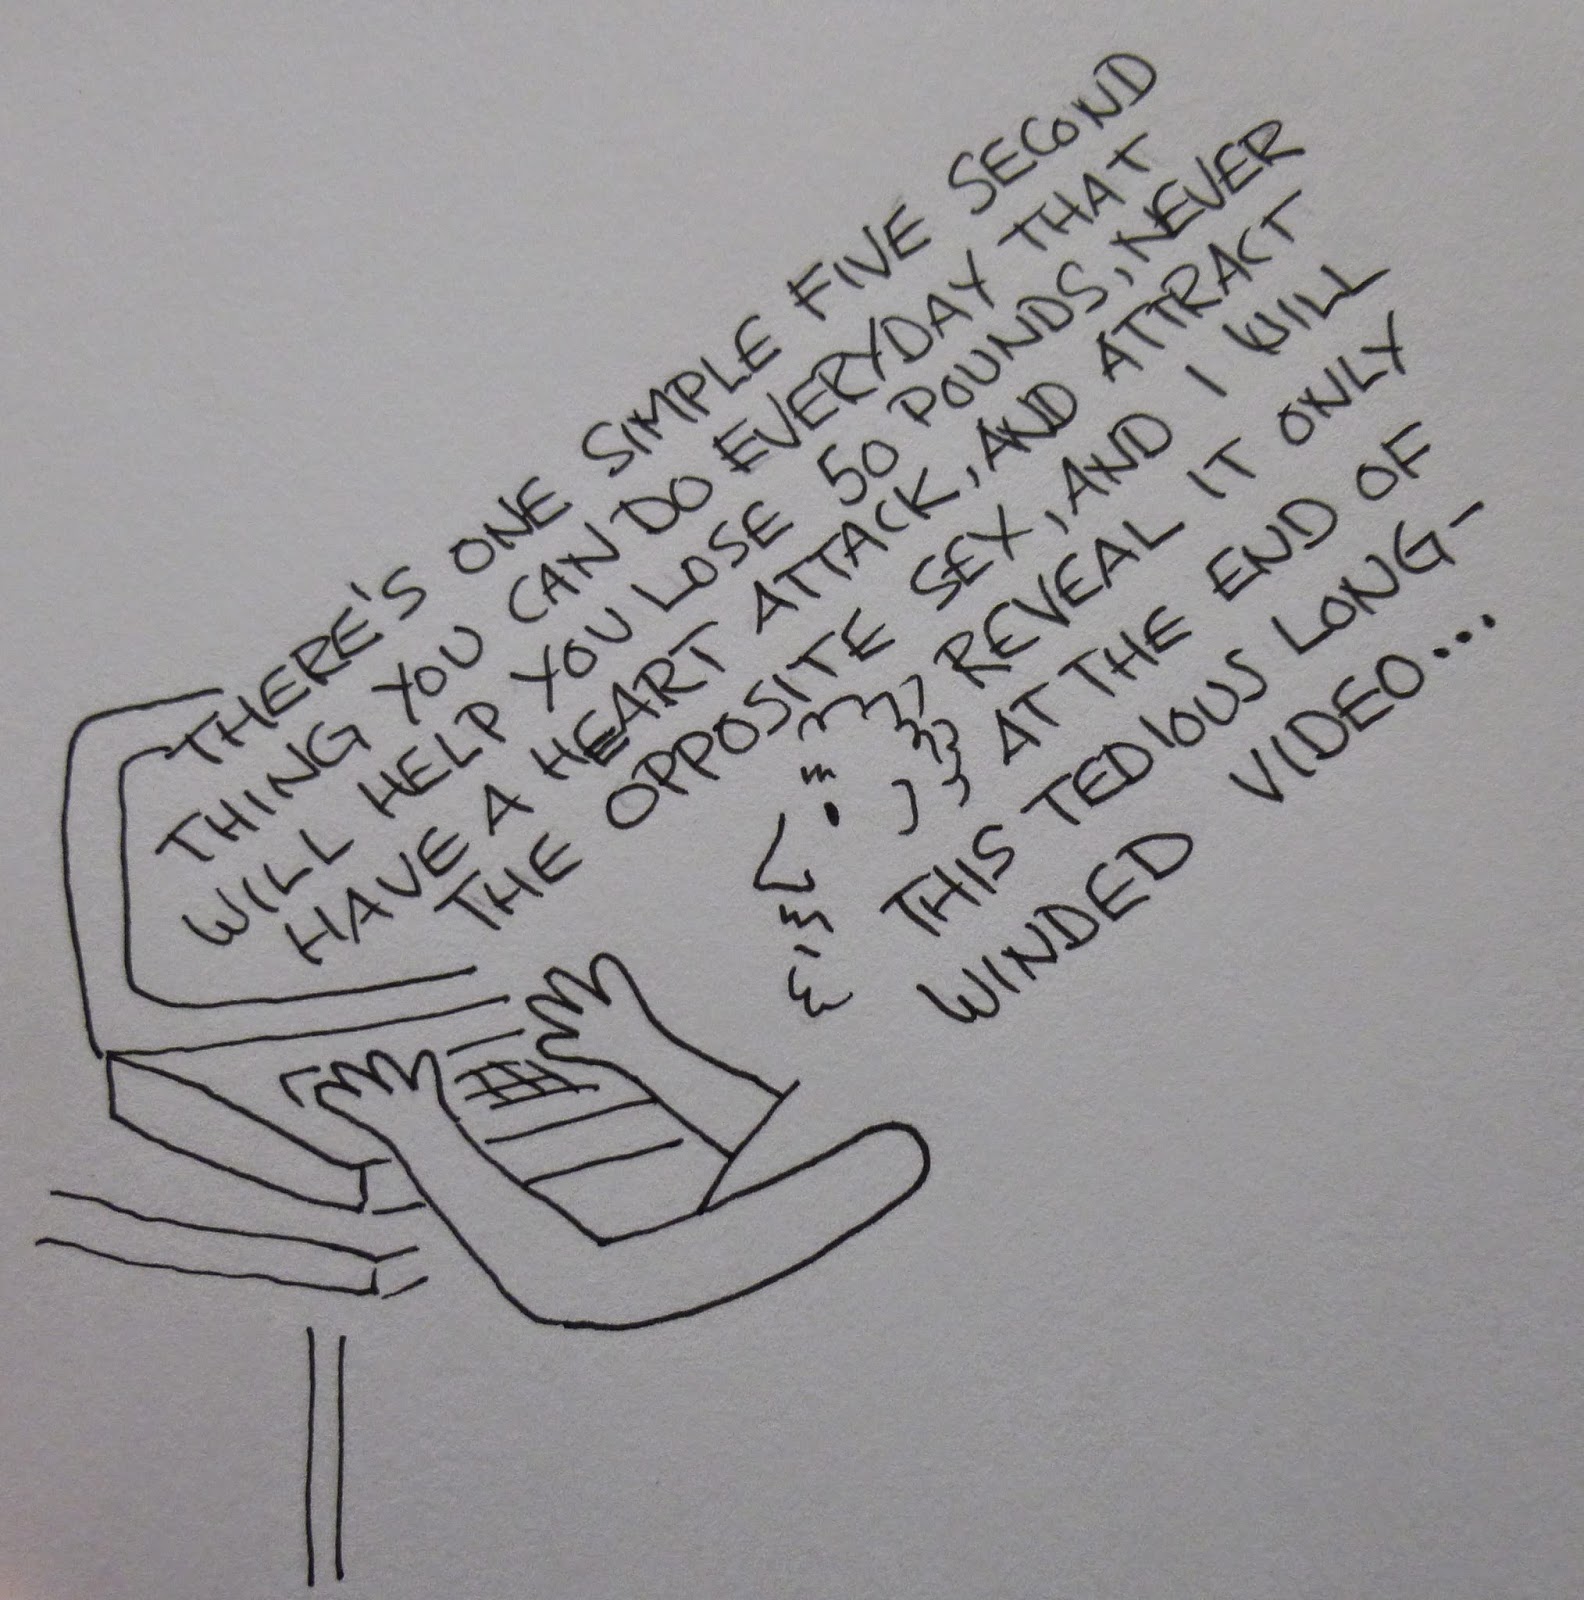 THERE'S ONE SIMPLE FIVE SECOND
THING YOU CAN DO EVERYDAY THAT
WILL HELP YOU LOSE 50 POUNDS, NEVER
HAVE A HEART ATTACK, AND ATTRACT
THE OPPOSITE SEX, AND I WILL
REVEAL IT ONLY
AT THE END OF
THIS TEDIOUS LONG-
WINDED VIDEO...